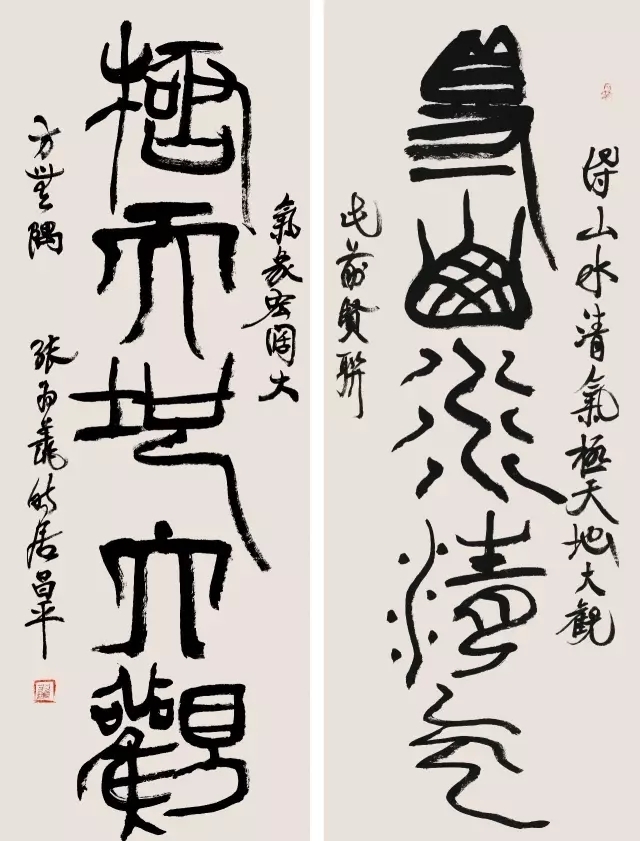 得山水清氣極天地大觀
得山水清气
此前賢聯
氣象宏闊大
極天地大觀
方無隅
張 時居昌平